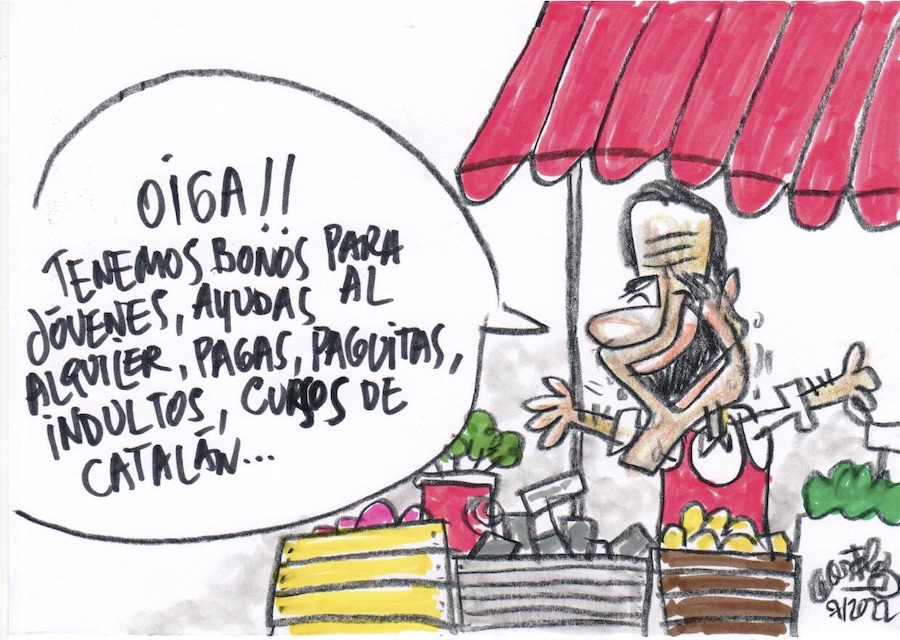 OIGA!!
TENEMOS BONOS PARA
JÓVENES, AYUDAS AL
ALQUILER, PAGAS, PAGUITAS,
INDULTOS, CURSOS DE
CATALÁN...
9/2022